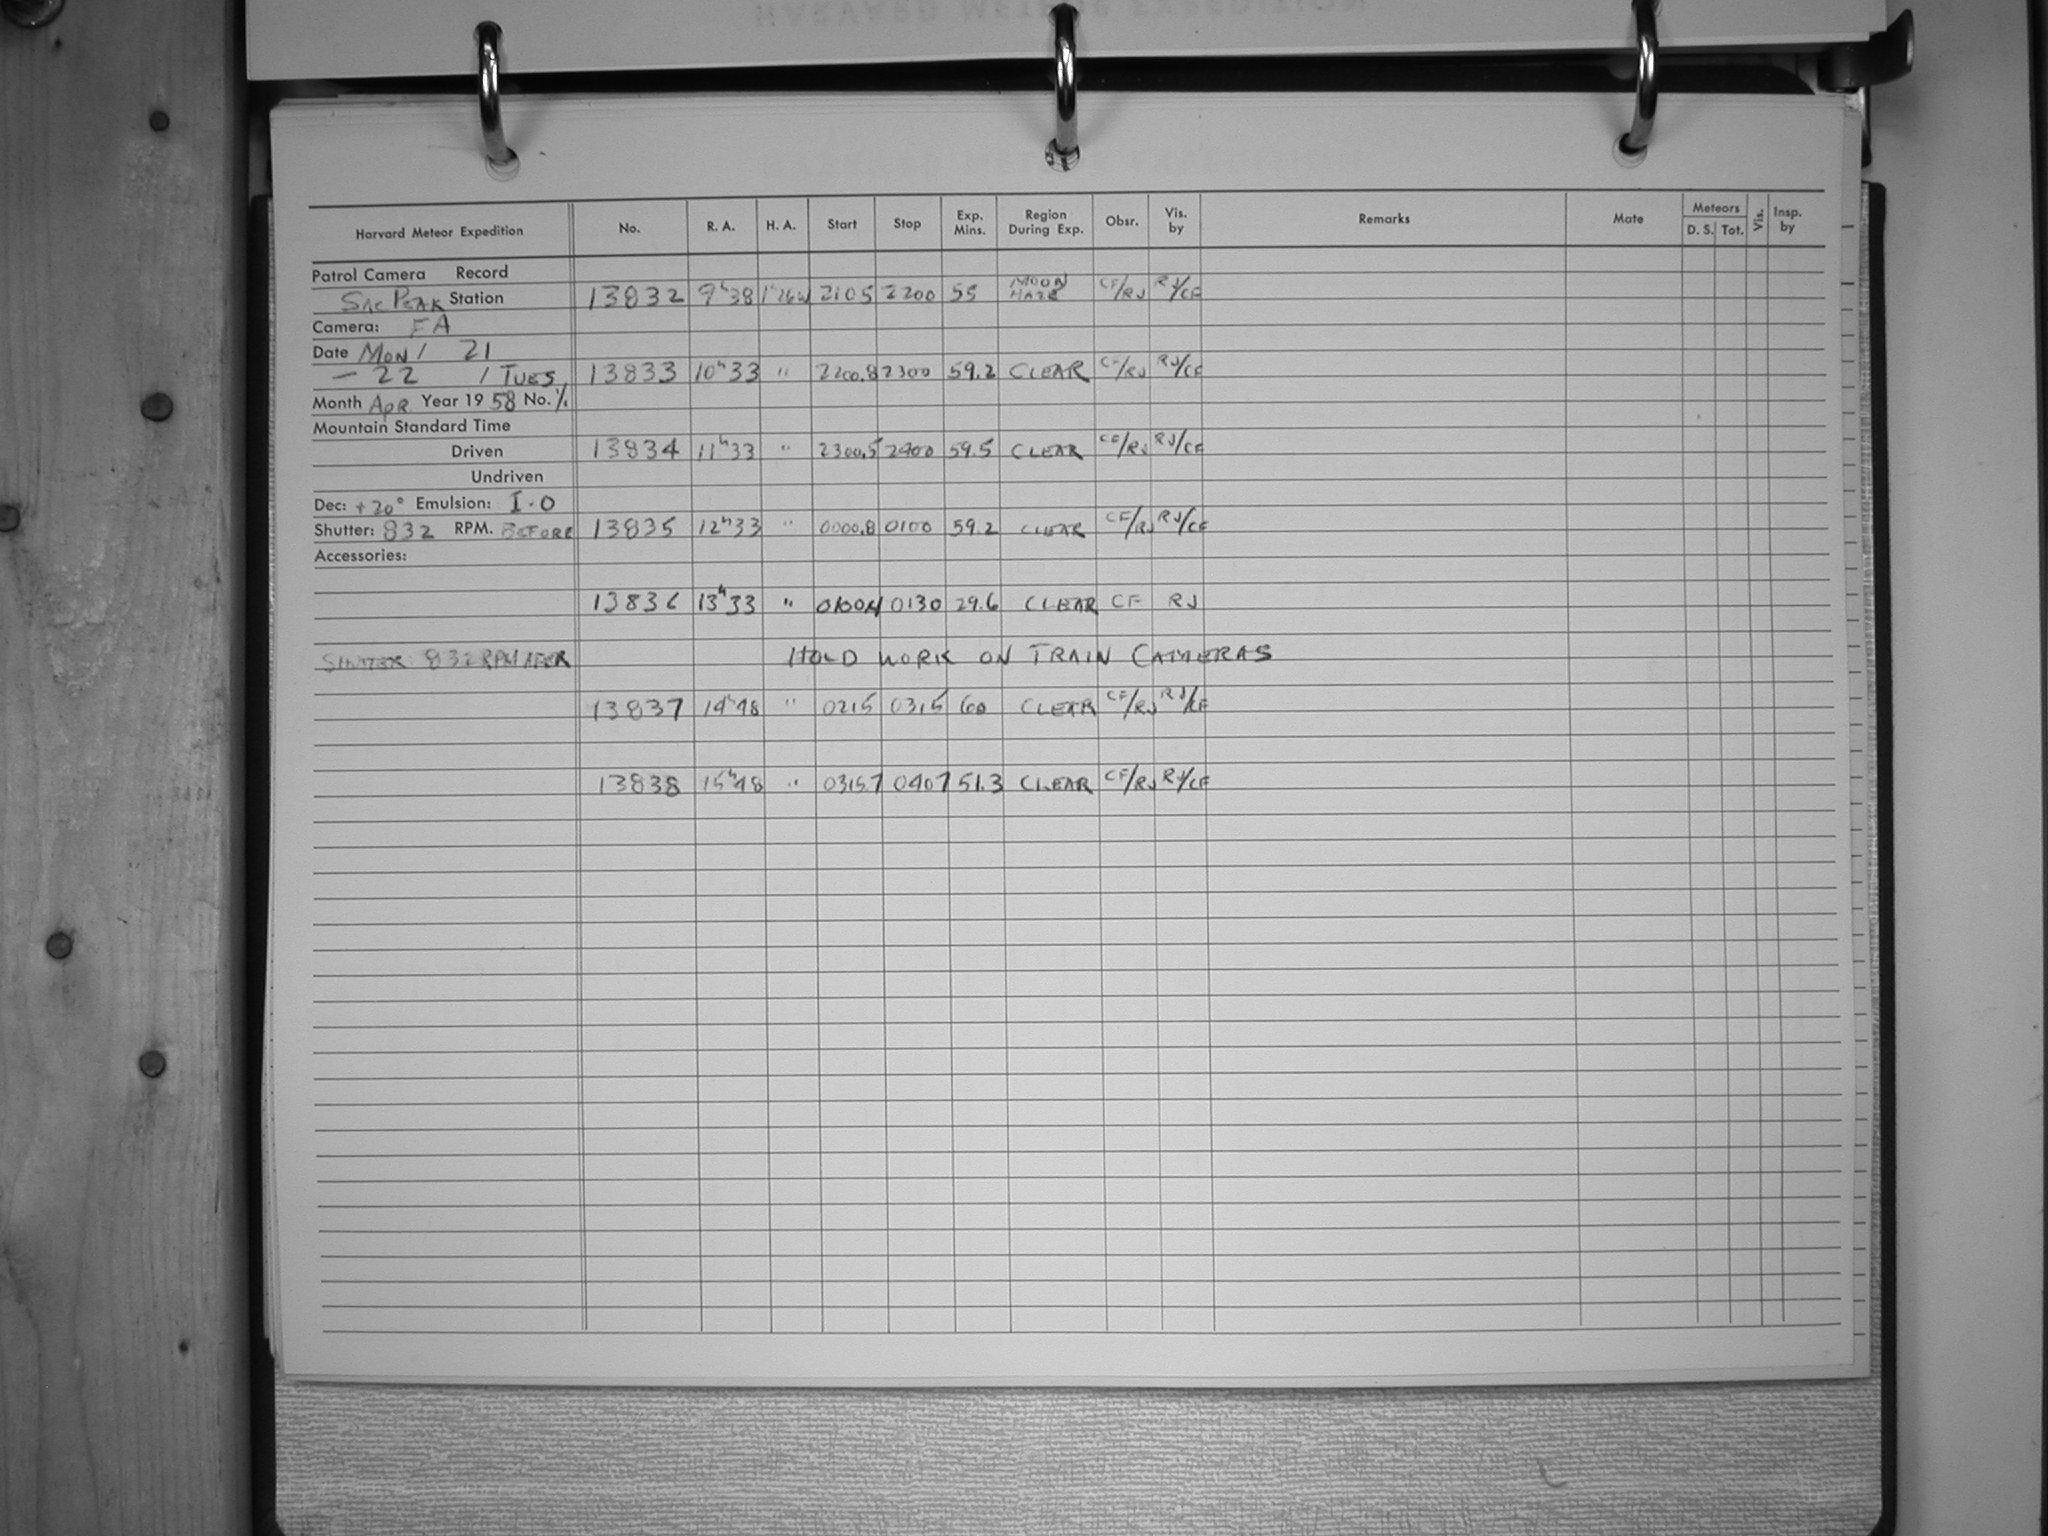 HARVARD METEOR EXPEDITION
Harvard Meteor Expedition No. R. A. H. A. Start Stop Exp. Mins. Region During Exp. Obsr. Vis. by Remarks Mate Meteors D. S. Tot. Vis. Insp. by
Patrol Camera Record
Sac Peak Station 13832 9h38 2105 2200 55 MOON HAZE CF/RJ RJ/CF
Camera: FA
Date Mon / 21
- 22 / TUES 13833 10h33 " 2200.8 2300 59.2 CLEAR CF/RJ RJ/CF
Month Apr Year 19 58 No.
Mountain Standard Time
Driven 13834 11h33 " 2300.5 2400 59.5 CLEAR CF/RJ RJ/CF
Undriven
Dec: +20° Emulsion: I-O
Shutter: 832 RPM. BEFORE 13835 12h33 " 0000.8 0100 59.2 CLEAR CF/RJ RJ/CF
Accessories:
13836 13h33 " 0130 29.6 CLEAR CF RJ
832 RPM AFTER HOLD WORK ON TRAIN CAMERAS
13837 14h48 " 0215 0315 60 CLEAR CF/RJ RJ/CF
13838 15h48 " 0315.7 0407 51.3 CLEAR CF/RJ RJ/CF